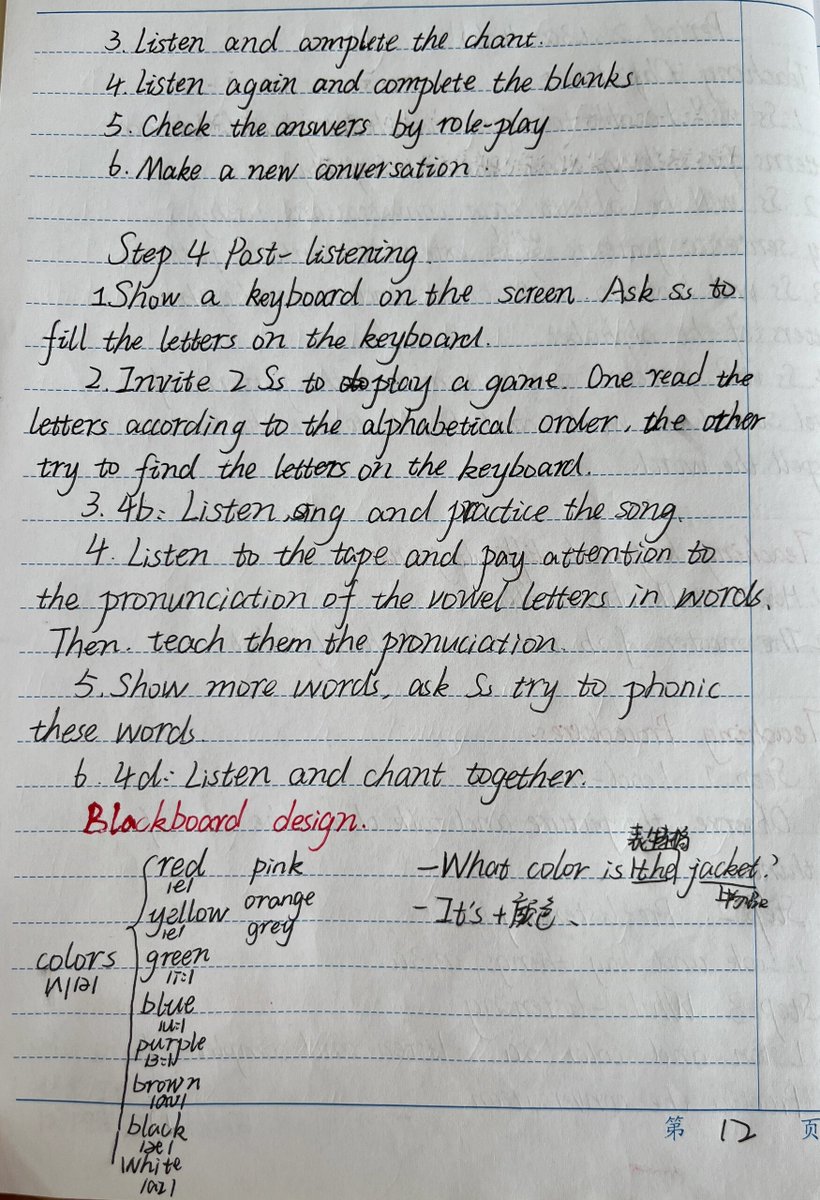 3. Listen and complete the chant.
4. listen again and complete the blanks
5. Check the answers by role-play
6. Make a new conversation.
Step 4 Post-listening.
1. Show a keyboard on the screen Ask ss to
fill the letters on the keyboard.
2. Invite 2 Ss to play a game. One read the
letters according to the alphabetical order, the other
try to find the letters on the keyboard.
3. 4b: Listen, sing and practice the song.
4. Listen to the tape and pay attention to
the pronunciation of the vowel letters in words.
Then. teach them the pronuciation.
5. Show more words, ask Ss try to phonic
these words.
6. 4d: Listen and chant together.
Blackboard design.
colors
/ʌ/ /ə/
red
/e/
yellow
/e/
green
/i:/
blue
/u:/
purple
/ɜ:/
brown
/aʊ/
black
/æ/
white
/aɪ/
pink
orange
grey
-What color is the jacket?
-It's + 颜色、
第 12 页